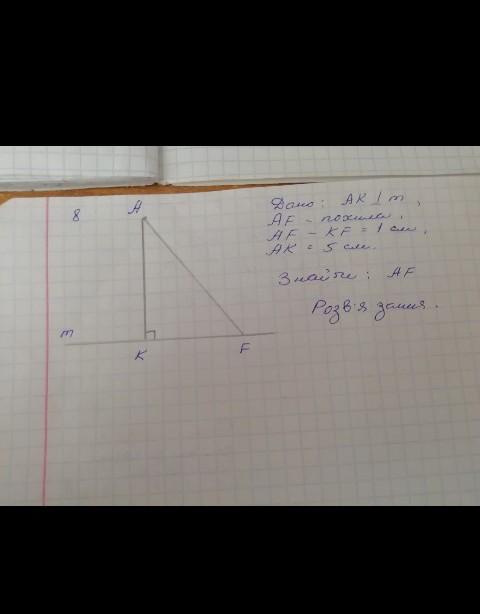 8
A
Дано: AK ⊥ m,
AF - похила,
AF - KF = 1 см,
AK = 5 см.
Знайти: AF
Розв'язання.
m
K
F